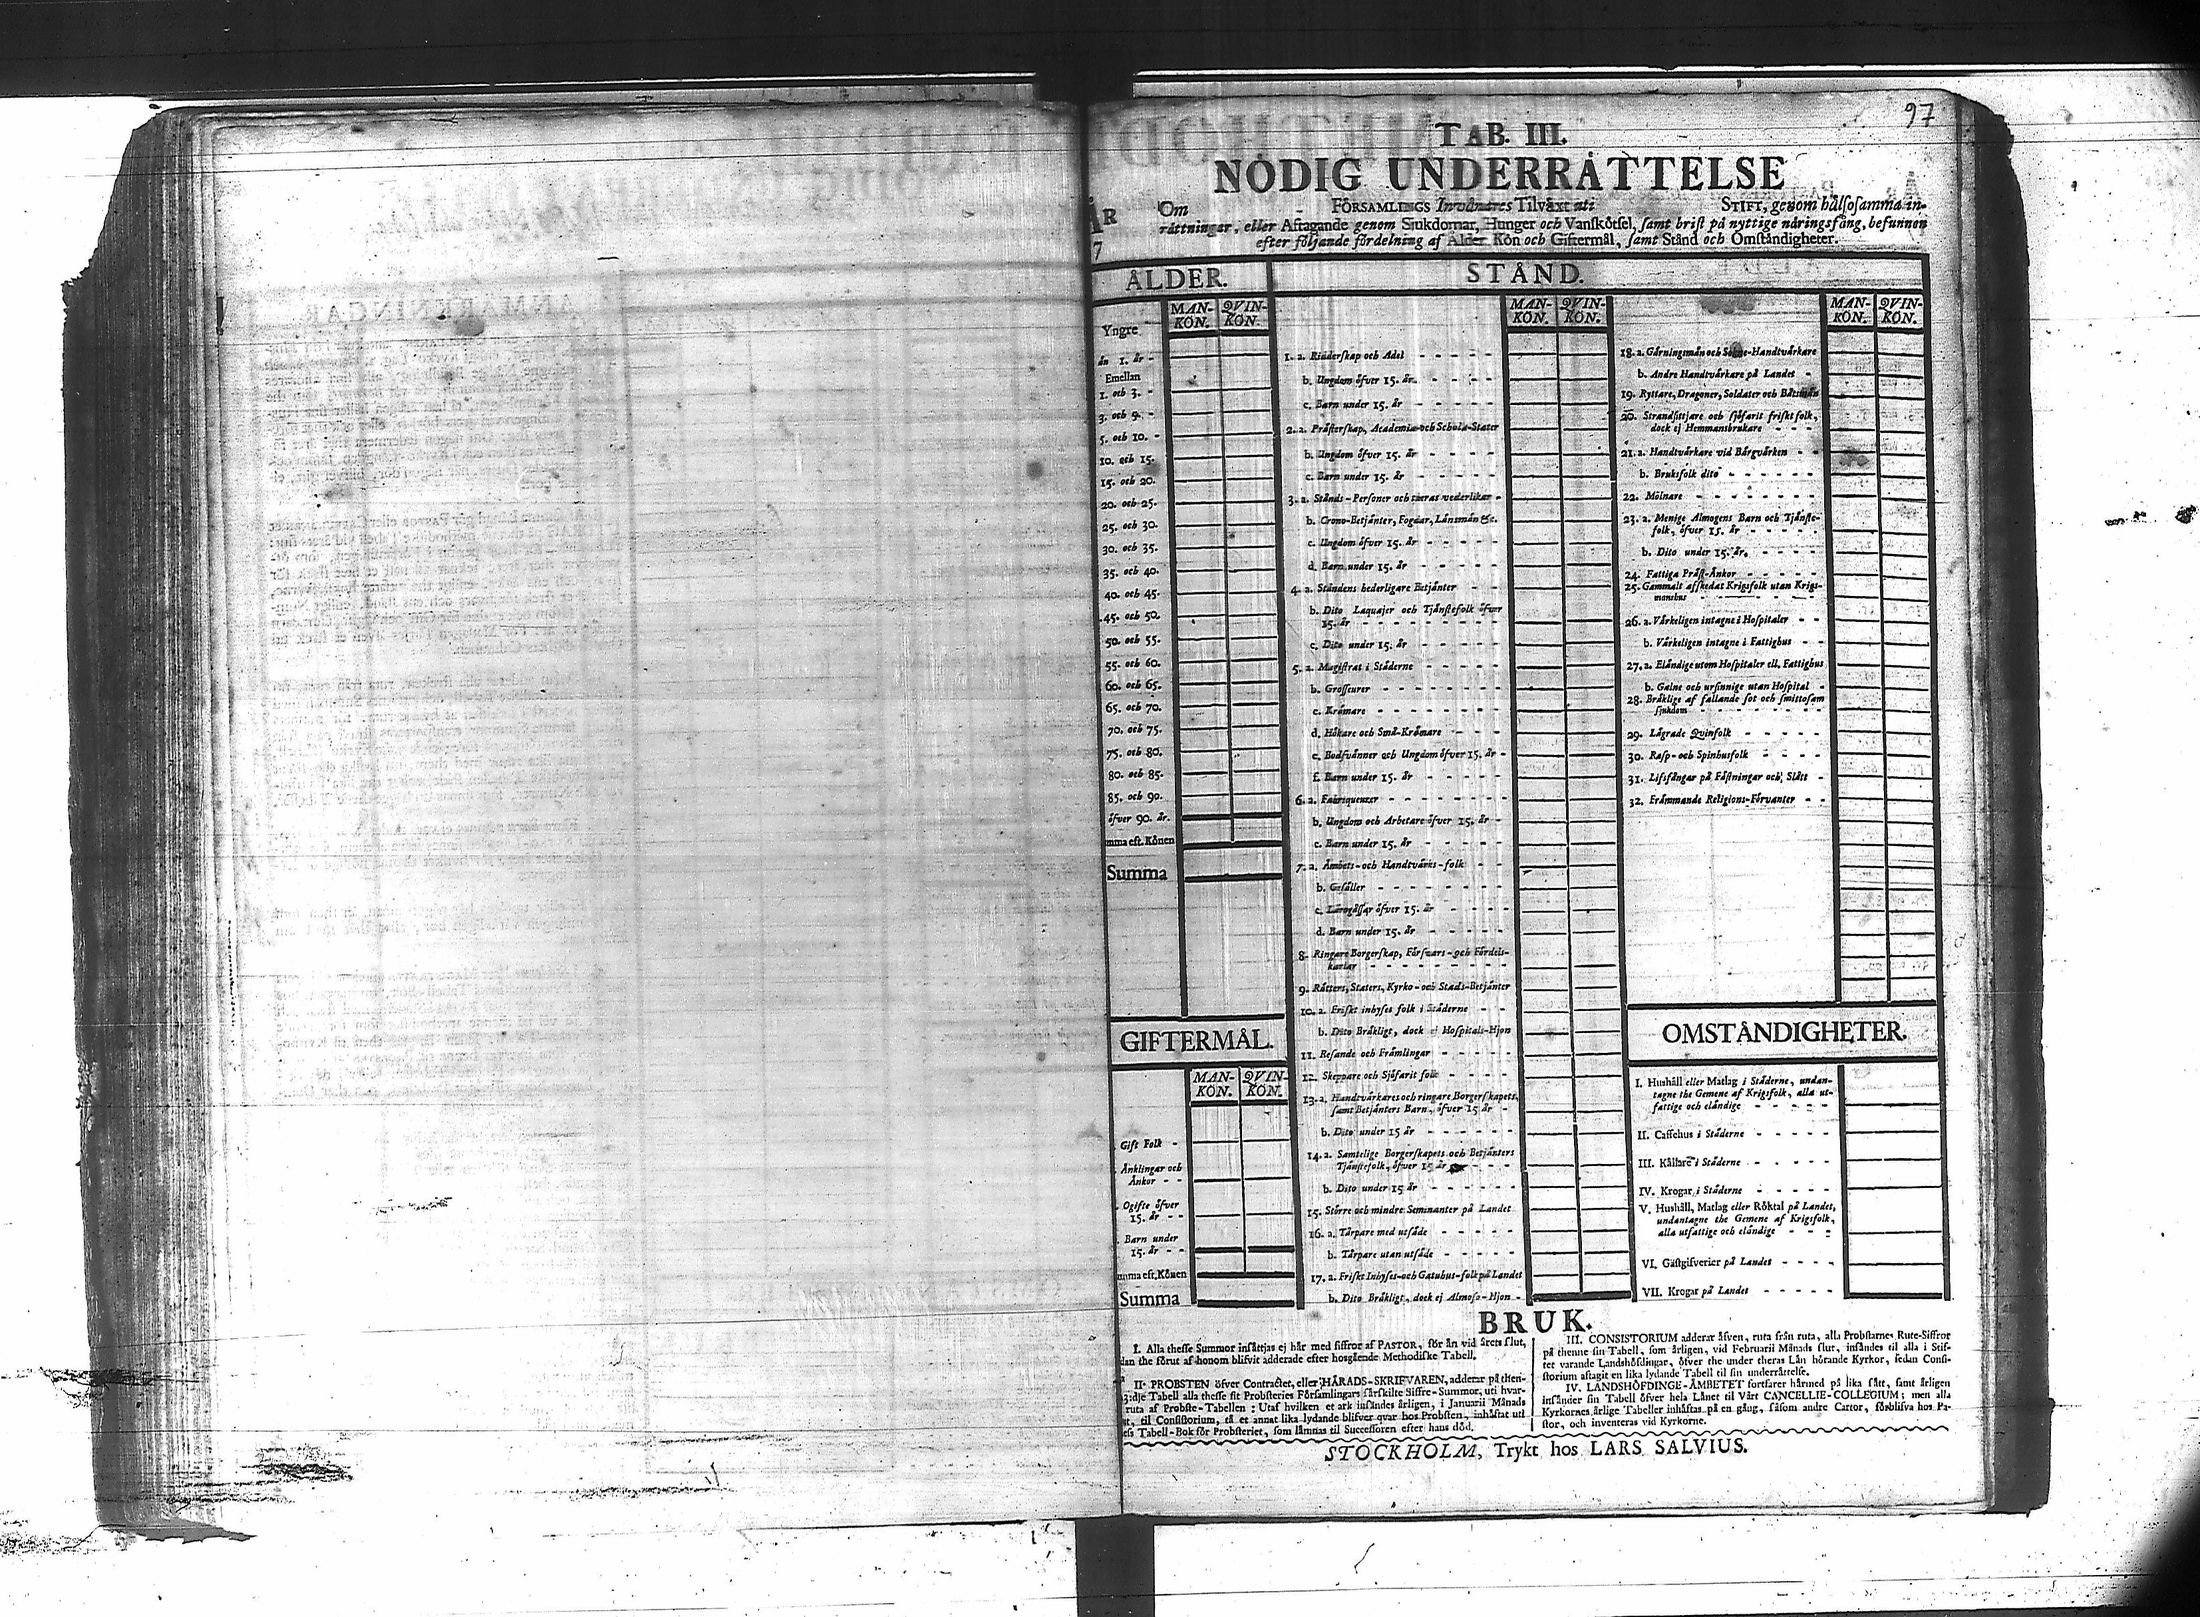 97
TAB. III.
NÖDIG UNDERRÄTTELSE
ÅR
17
Om FÖRSAMLINGS Invånares Tilväxt uti STIFT, genom hälsosamma in-
rättningar, eller Aftagande genom Sjukdomar, Hunger och Vanskötsel, samt brist på nyttige näringsfång, befunnen
efter följande fördelning af Ålder, Kön och Giftermål, samt Stånd och Omständigheter.
ÅLDER.
MAN-KÖN. QVIN-KÖN.
Yngre
än 1. år -
Emellan
1. och 3. -
3. och 5. -
5. och 10. -
10. och 15.
15. och 20.
20. och 25.
25. och 30.
30. och 35.
35. och 40.
40. och 45.
45. och 50.
50. och 55.
55. och 60.
60. och 65.
65. och 70.
70. och 75.
75. och 80.
80. och 85.
85. och 90.
öfver 90. år.
mma eft. Könen
Summa
GIFTERMÅL.
MAN-KÖN. QVIN-KÖN.
Gift Folk -
Änklingar och
Änkor - -
Ogifte öfver
15. år - -
Barn under
15. år - -
mma eft. Könen
Summa
STÅND.
MAN-KÖN. QVIN-KÖN.
1. a. Ridderskap och Adel
b. Ungdom öfver 15. år.
c. Barn under 15. år
2. a. Prästerskap, Academiæ-och Scholæ-Stater
b. Ungdom öfver 15. år
c. Barn under 15. år
3. a. Stånds-Personer och theras vederlikar -
b. Crono-Betjänter, Fogdar, Länsmän &c.
c. Ungdom öfver 15. år
d. Barn under 15. år
4. a. Ståndens hederligare Betjänter
b. Dito Laquajer och Tjänstefolk öfver
15. år
c. Dito under 15. år
5. a. Magistrat i Städerne
b. Grosseurer
c. Krämare
d. Hökare och Små-Krämare
e. Bodsvänner och Ungdom öfver 15. år -
f. Barn under 15. år
6. a. Fabriqueurer
b. Ungdom och Arbetare öfver 15. år -
c. Barn under 15. år
7. a. Ämbets-och Handtvärks-folk
b. Gesäller
c. Lärogåssar öfver 15. år
d. Barn under 15. år
8. Ringare Borgerskap, Försvars-och Fördels-
karlar
9. Rätters, Staters, Kyrko-och Stads-Betjänter
10. a. Friskt inhyses folk i Städerne
b. Dito Bräkligt, dock ej Hospitals-Hjon
11. Resande och Främlingar
12. Skeppare och Sjöfarit folk
13. a. Handtvärkares och ringare Borgerskapets,
samt Betjänters Barn, öfver 15 år
b. Dito under 15 år
14. a. Samtelige Borgerskapets och Betjänters
Tjänstefolk, öfver 15 år
b. Dito under 15 år
15. Större och mindre Seminanter på Landet
16. a. Torpare med utsäde
b. Torpare utan utsäde
17. a. Friskt Inhyses-och Gatuhus-folk på Landet
b. Dito Bräkligt, dock ej Almoso-Hjon -
MAN-KÖN. QVIN-KÖN.
18. a. Gärningsmän och Sokne-Handtvärkare
b. Andre Handtvärkare på Landet -
19. Ryttare, Dragoner, Soldater och Båtsmän
20. Strandsittjare och sjöfarit friskt folk,
dock ej Hemmansbrukare
21. a. Handtvärkare vid Bärgvärken
b. Bruksfolk dito
22. Mölnare
23. a. Menige Almogens Barn och Tjänste-
folk, öfver 15. år
b. Dito under 15. år.
24. Fattiga Präst-Änkor
25. Gammalt affskedat Krigsfolk utan Krigs-
manshus
26. a. Värkeligen intagne i Hospitaler
b. Värkeligen intagne i Fattighus
27. a. Eländige utom Hospitaler ell. Fattighus
b. Galne och ursinnige utan Hospital -
28. Bräklige af fallande sot och smittosam
sjukdom
29. Lägrade Qvinfolk
30. Rasp-och Spinhusfolk
31. Lifsfångar på Fästningar och Slått -
32. Främmande Religions-Förvanter
OMSTÄNDIGHETER.
I. Hushåll eller Matlag i Städerne, undan-
tagne the Gemene af Krigsfolk, alla ut-
fattige och eländige
II. Caffehus i Städerne
III. Källare i Städerne
IV. Krogar i Städerne
V. Hushåll, Matlag eller Röktal på Landet,
undantagne the Gemene af Krigsfolk,
alla utfattige och eländige
VI. Gästgifverier på Landet
VII. Krogar på Landet
BRUK.
I. Alla thesse Summor insättjas ej här med siffror af PASTOR, för än vid årets slut,
dan the förut af honom blifvit adderade efter hosgående Methodiske Tabell.
II. PROBSTEN öfver Contractet, eller HÄRADS-SKRIFVAREN, adderar på then-
3:dje Tabell alla thesse sit Probsteries Församlingars särskilte Siffre-Summor, uti hvar-
ruta af Probste-Tabellen: Utaf hvilken et ark insändes årligen, i Januarii Månads
ut, til Consistorium, tå et annat lika lydande blifver qvar hos Probsten, inhäftat uti
ess Tabell-Bok för Probsteriet, som lämnas til Successoren efter hans död.
III. CONSISTORIUM adderar äfven, ruta från ruta, alla Probstarnes Rute-Siffror
på thenne sin Tabell, som årligen, vid Februarii Månads slut, insändes til alla i Stif-
tet varande Landshöfdingar, öfver the under theras Län hörande Kyrkor, sedan Consi-
storium aftagit en lika lydande Tabell til sin underrättelse.
IV. LANDSHÖFDINGE-ÄMBETET fortfarer härmed på lika sätt, samt årligen
insänder sin Tabell öfver hela Länet til Vårt CANCELLIE-COLLEGIUM; men alla
Kyrkornes årlige Tabeller inhäftas på en gång, såsom andre Cartor, förblifva hos Pa-
stor, och inventeras vid Kyrkorne.
STOCKHOLM, Trykt hos LARS SALVIUS.